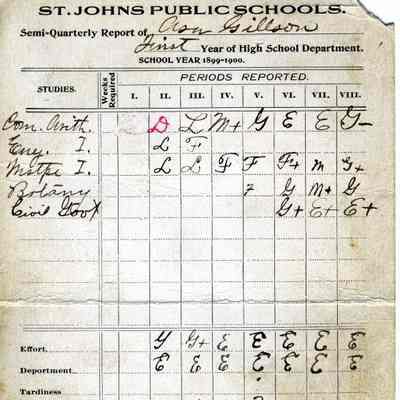 ST. JOHNS PUBLIC SCHOOLS.
Semi-Quarterly Report of Asa Gillson
First Year of High School Department.
SCHOOL YEAR 1899-1900.
STUDIES. Weeks Required PERIODS REPORTED.
I. II. III. IV. V. VI. VII. VIII.
Com. Arith. D L M+ G E E G-
Eng. I. L F
I. L L F F F+ M G+
Botany F G M+ G
Civil Gov't G+ E+ E+
Effort G G+ E E E E E
Department E E E E E E E
Tardiness